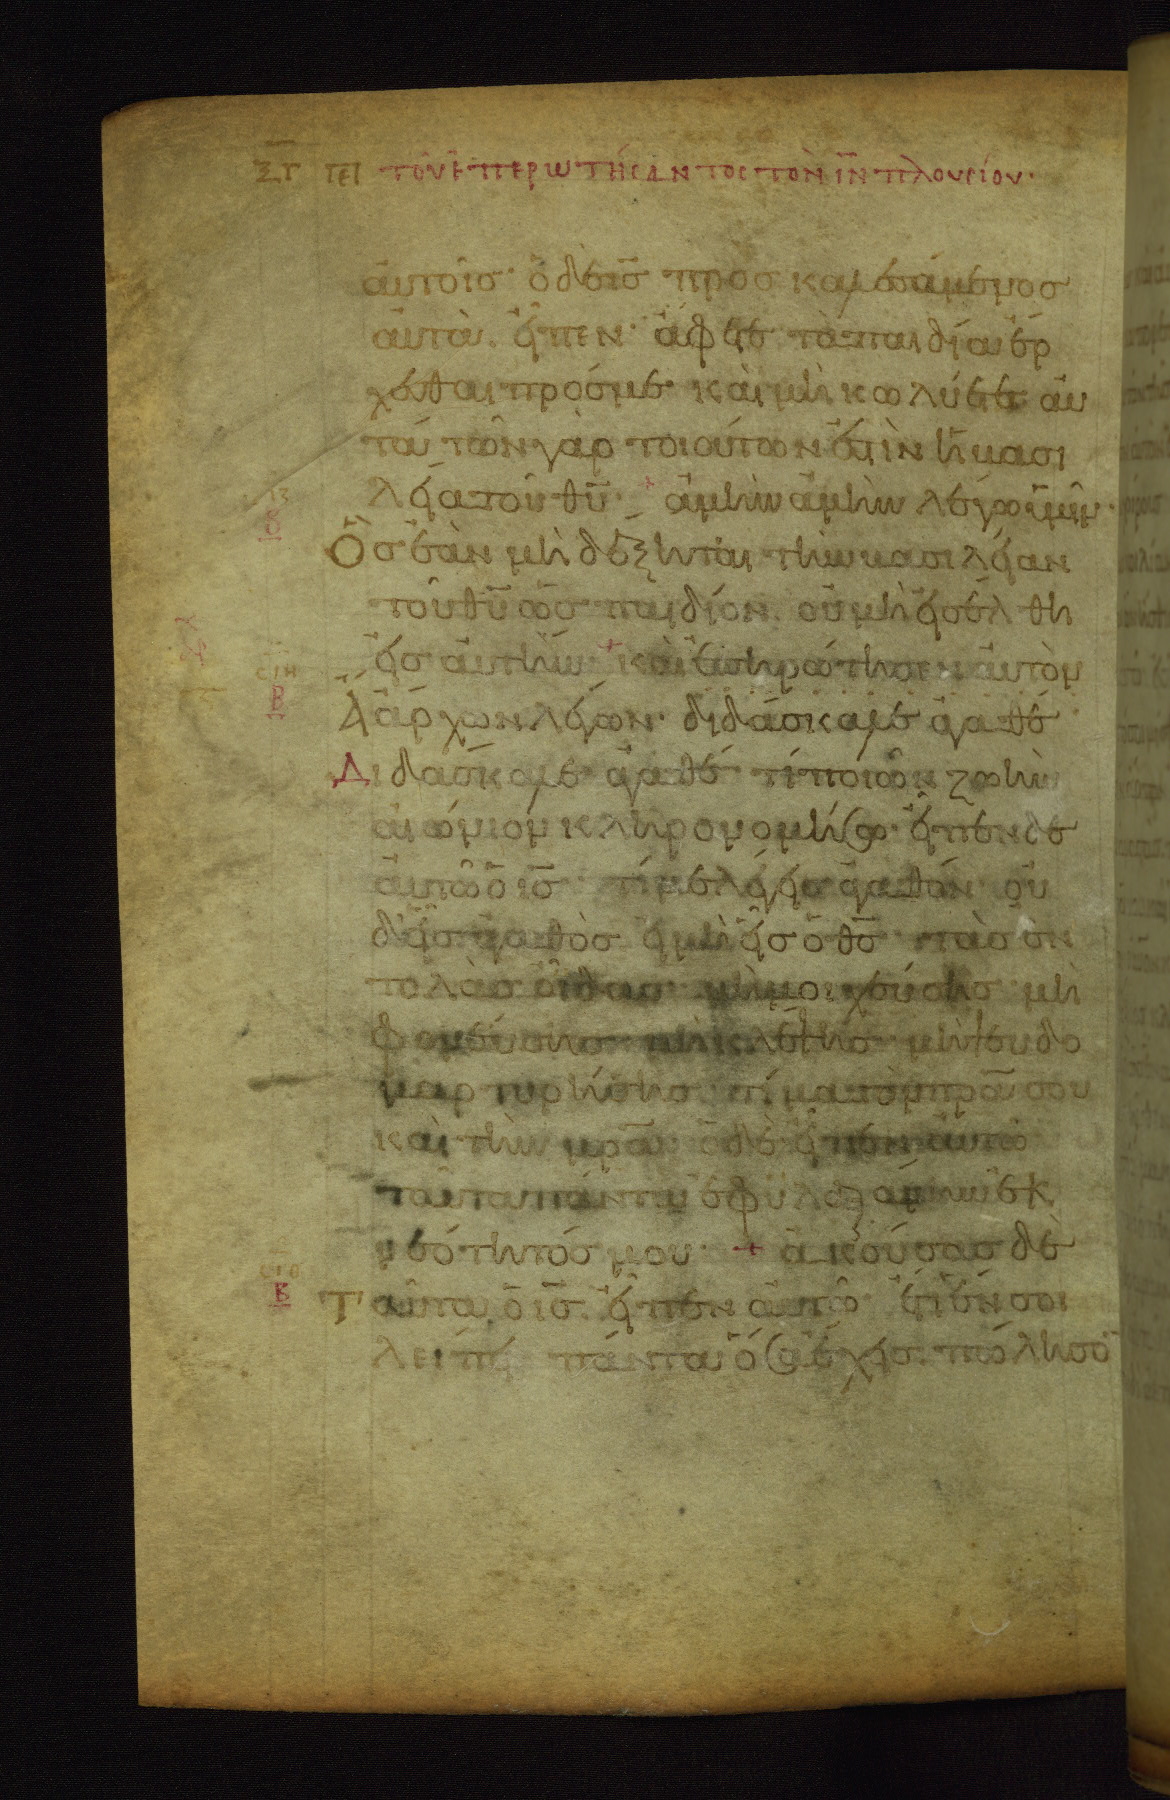 ΞΓ ΠΕΡΙ τοῦ ἐπερωτήσαντος τὸν ἰν πλουσίου·
αὐτοῖσ· ὁ δὲ ισ προσκαλεσάμενοσ
αὐτὰ. εἶπεν· ἄφετε τὰ παιδία ἔρ
χεσθαι πρόσ με· καὶ μὴ κωλύετε αὐ
τά· τῶν γὰρ τοιούτων ἐστὶν ἡ βασι
λεία τοῦ θυ· + ἀμὴν ἀμὴν λέγω ὑμῖν·
Ὃσ ἐὰν μὴ δέξηται τὴν βασιλείαν
τοῦ θυ ὡσ παιδίον. οὐ μὴ εἰσέλθη
εἰσ αὐτήν· + καὶ ἐπηρώτησεν αὐτὸν
ἄρχων λέγων· διδάσκαλε ἀγαθέ·
Διδάσκαλε ἀγαθέ τί ποιῶν ζωὴν
αἰώνιον κληρονομήσω· εἶπεν δὲ
αὐτῶ ὁ ισ· τί με λέγεισ ἀγαθόν· οὐ
δεὶσ ἀγαθὸσ εἰ μὴ εἷσ ὁ θσ· τὰσ ἐν
τολὰσ οἶδασ· μὴ μοιχεύσησ· μὴ
φονεύσησ· μὴ κλέψησ· μὴ ψευδο
μαρτυρήσησ· τίμα τὸν πρα σου
καὶ τὴν μρα· ὁ δὲ εἶπεν αὐτῶ
ταῦτα πάντα ἐφυλαξάμην ἐκ
νεότητόσ μου· + ἀκούσασ δὲ
ταῦτα ὁ ισ. εἶπεν αὐτῶ· ἔτι ἕν σοι
λείπει· πάντα ὅσα ἔχεισ πώλησο